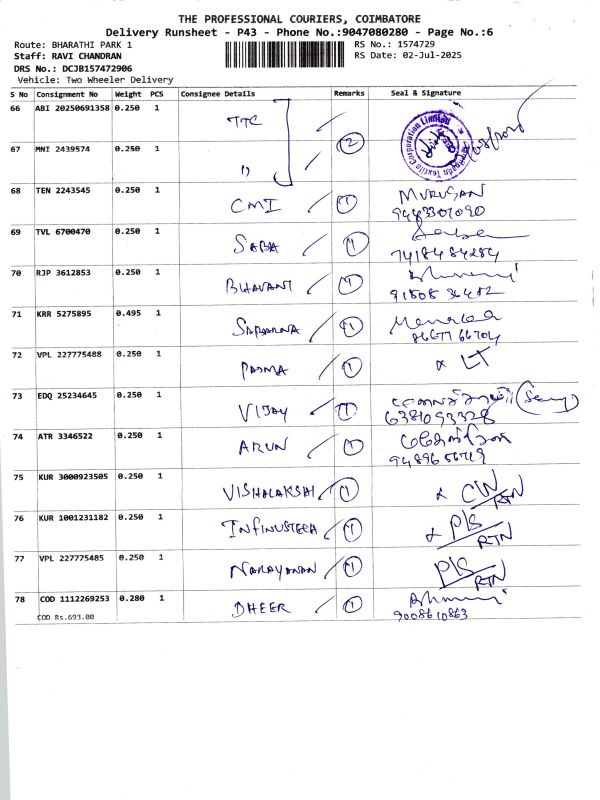 THE PROFESSIONAL COURIERS, COIMBATORE
Delivery Runsheet - P43 - Phone No.:9047080280 - Page No.:6
Route: BHARATHI PARK 1
RS No.: 1574729
Staff: RAVI CHANDRAN
RS Date: 02-Jul-2025
DRS No.: DCJB157472906
Vehicle: Two Wheeler Delivery
S No Consignment No Weight PCS Consignee Details Remarks Seal & Signature
66 ABI 20250691358 0.250 1 TTC 2
67 MNI 2439574 0.250 1 "
68 TEN 2243545 0.250 1 CMI 1 MURUGAN
69 TVL 6700470 0.250 1 SABA 1
7418484284
70 RJP 3612853 0.250 1 BHAVANI 1
71 KRR 5275895 0.495 1 1
72 VPL 227775488 0.250 1 PADMA 1 LT
73 EDQ 25234645 0.250 1 VIJAY 1
6381093328
74 ATR 3346522 0.250 1 ARUN 1
75 KUR 3000923505 0.250 1 VISHALAKSHI 1
RTN
76 KUR 1001231182 0.250 1 1 P/S
RTN
77 VPL 227775485 0.250 1 NARAYANAN 1 P/S
RTN
78 COD 1112269253 0.280 1 DHEER 1
COD Rs.693.00
9008610863